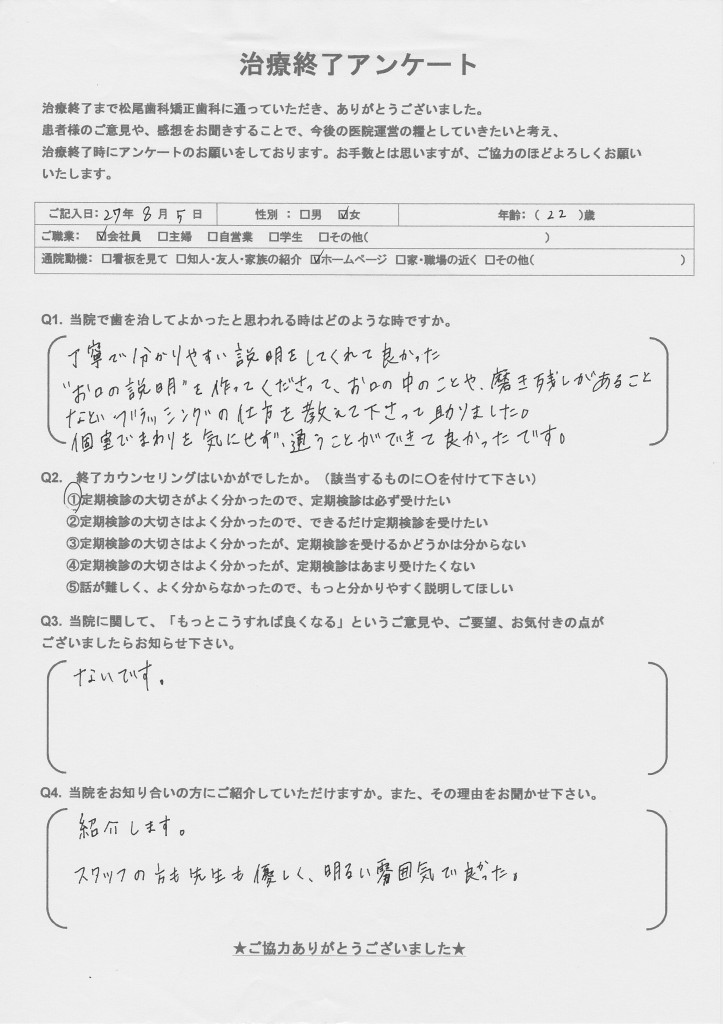 治療終了アンケート
治療終了まで松尾歯科矯正歯科に通っていただき、ありがとうございました。
患者様のご意見や、感想をお聞きすることで、今後の医院運営の糧としていきたいと考え、
治療終了時にアンケートのお願いをしております。お手数とは思いますが、ご協力のほどよろしくお願い
いたします。
ご記入日：27年 8月 5日 性別 ： □男 ☑女 年齢：（ 22 ）歳
ご職業： ☑会社員 □主婦 □自営業 □学生 □その他（ ）
通院動機：□看板を見て □知人・友人・家族の紹介 ☑ホームページ □家・職場の近く □その他（ ）
Q1. 当院で歯を治してよかったと思われる時はどのような時ですか。
丁寧で分かりやすい説明をしてくれて良かった
"お口の説明"を作ってくださって、お口の中のことや、磨き残しがあること
などいブラッシングの仕方を教えて下さって助りました。
個室でまわりを気にせず、通うことができて良かったです。
Q2. 終了カウンセリングはいかがでしたか。（該当するものに○を付けて下さい）
①定期検診の大切さがよく分かったので、定期検診は必ず受けたい
②定期検診の大切さはよく分かったので、できるだけ定期検診を受けたい
③定期検診の大切さはよく分かったが、定期検診を受けるかどうかは分からない
④定期検診の大切さはよく分かったが、定期検診はあまり受けたくない
⑤話が難しく、よく分からなかったので、もっと分かりやすく説明してほしい
Q3. 当院に関して、「もっとこうすれば良くなる」というご意見や、ご要望、お気付きの点が
ございましたらお知らせ下さい。
ないです。
Q4. 当院をお知り合いの方にご紹介していただけますか。また、その理由をお聞かせ下さい。
紹介します。
スタッフの方も先生も優しく、明るい雰囲気で良かった。
★ご協力ありがとうございました★